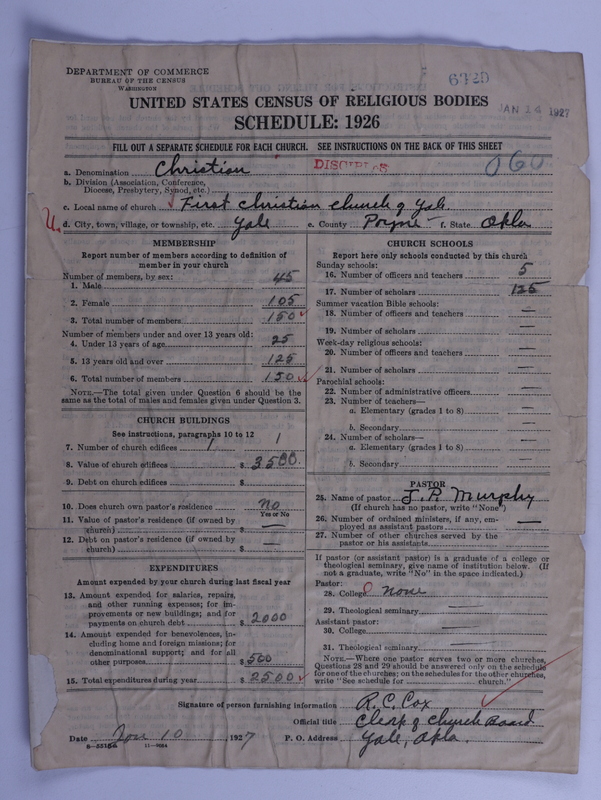 DEPARTMENT OF COMMERCE
BUREAU OF THE CENSUS
WASHINGTON
JAN 14 1927
UNITED STATES CENSUS OF RELIGIOUS BODIES
SCHEDULE: 1926
FILL OUT A SEPARATE SCHEDULE FOR EACH CHURCH. SEE INSTRUCTIONS ON THE BACK OF THIS SHEET
a. Denomination Christian 060
b. Division (Association, Conference,
Diocese, Presbytery, Synod, etc.)
c. Local name of church First Christian Church of Yale.
d. City, town, village, or township, etc. Yale e. County Payne f. State Okla
MEMBERSHIP
Report number of members according to definition of
member in your church
Number of members, by sex:
1. Male 45
2. Female 105
3. Total number of members 150
Number of members under and over 13 years old:
4. Under 13 years of age 25
5. 13 years old and over 125
6. Total number of members 150
NOTE.—The total given under Question 6 should be the
same as the total of males and females given under Question 3.
CHURCH BUILDINGS
See instructions, paragraphs 10 to 12
7. Number of church edifices 1 1
8. Value of church edifices $ 3500.
9. Debt on church edifices $
10. Does church own pastor's residence? no
Yes or No
11. Value of pastor's residence (if owned by
church) $ —
12. Debt on pastor's residence (if owned by
church) $ —
EXPENDITURES
Amount expended by your church during last fiscal year
13. Amount expended for salaries, repairs,
and other running expenses; for im-
provements or new buildings; and for
payments on church debt $ 2000
14. Amount expended for benevolences, in-
cluding home and foreign missions; for
denominational support; and for all
other purposes $ 500
15. Total expenditures during year $ 2500
CHURCH SCHOOLS
Report here only schools conducted by this church
Sunday schools:
16. Number of officers and teachers 5
17. Number of scholars 125
Summer vacation Bible schools:
18. Number of officers and teachers —
19. Number of scholars —
Week-day religious schools:
20. Number of officers and teachers —
21. Number of scholars —
Parochial schools:
22. Number of administrative officers —
23. Number of teachers—
a. Elementary (grades 1 to 8) —
b. Secondary —
24. Number of scholars—
a. Elementary (grades 1 to 8) —
b. Secondary —
PASTOR
25. Name of pastor J. P. Murphy
(If church has no pastor, write "None")
26. Number of ordained ministers, if any, em-
ployed as assistant pastors —
27. Number of other churches served by the
pastor or his assistants
If pastor (or assistant pastor) is a graduate of a college or
theological seminary, give name of institution below. (If
not a graduate, write "No" in the space indicated.)
Pastor:
28. College none
29. Theological seminary —
Assistant pastor:
30. College —
31. Theological seminary —
NOTE.—Where one pastor serves two or more churches,
Questions 28 and 29 should be answered only on the schedule
for one of the churches; on the schedules for the other churches,
write "See schedule for church."
Signature of person furnishing information R. C. Cox
Official title Clerk of Church Board
Date 10, 1927 P. O. Address Yale, Okla.